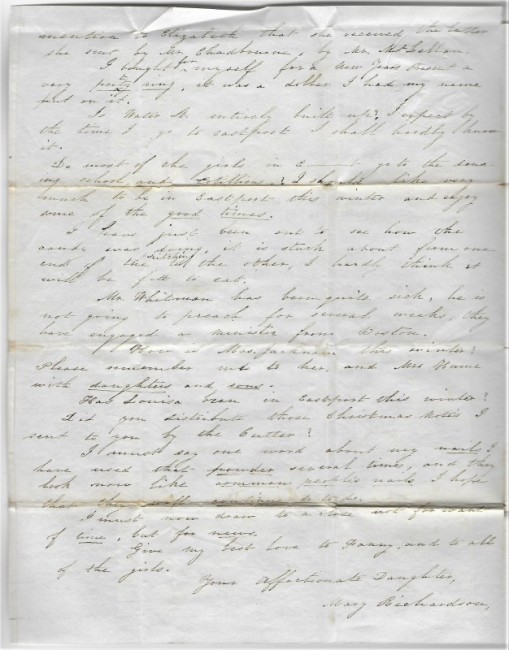 mention to Elizabeth that she received the letter
she sent by Mr. Chadbourne, by Mr. McLellan.
I bought for myself for a New Years Present a
very pretty ring, it was a dollar I had my name
put on it.
Is Water St. entirely built up? I expect by
the time I go to eastport I shall hardly know
it.
Do most of the girls in E—— go to the
school, and Cotillions? I should like very
much to be in Eastport this winter and enjoy
some of the good times.
I have just been out to see how the
candy was doing, it is stuck about from one
end of the kitchen to the other, I hardly think it
will be fit to eat.
Mr. Whitman has been quite sick, he is
not going to preach for several weeks, they
have engaged a minister from Boston.
How is Mrs. Jackman this winter?
Please remember me to her, and Mrs Hume
with daughters and sons.
Has Louisa been in Eastport this winter?
Did you distribute those Christmas Notes I
sent to you by the Cutter?
I must say one word about my nails. I
have used that powder several times, and they
look now like common people's nails. I hope
that they will continue to do so.
I must now draw to a close not for want
of time, but for news.
Give my best love to Fanny, and to all
of the girls.
Your Affectionate Daughter,
Mary Richardson,